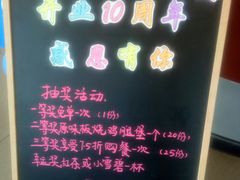 开业10周年
感恩有你
抽奖活动
一等奖免单一次（1份）
二等奖原味板烧鸡腿堡一个（20份）
三等奖享受7.5折购餐一次（25份）
幸运奖红茶或小雪碧一杯